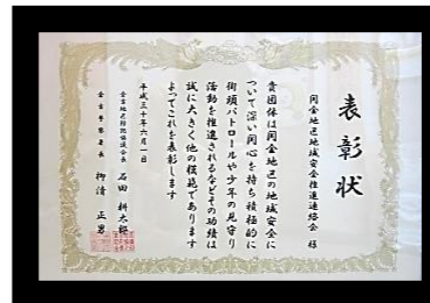 表彰状
関金地区地域安全推進連絡会 様
貴団体は関金地区の地域安全に
ついて深い関心を持ち積極的に
街頭パトロールや少年の見守り
活動を推進されるなどその功績は
誠に大きく他の模範であります
よってこれを表彰します
平成三十年六月一日
倉吉地区防犯協議会長 石田 耕太郎
倉吉警察署長 柳清 正男